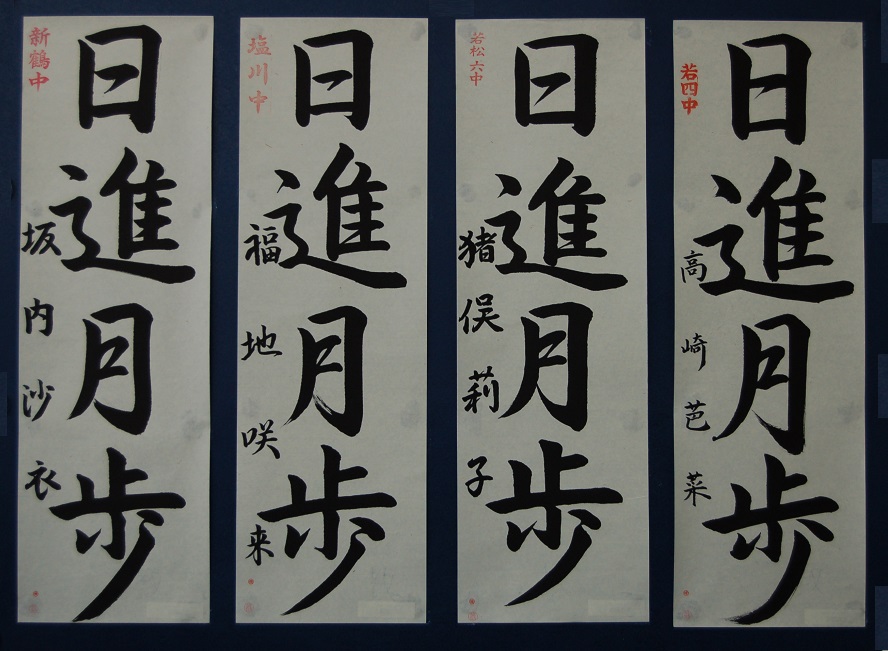 若四中
日進月歩
高崎芭菜
若松六中
日進月歩
猪俣莉子
塩川中
日進月歩
福地咲来
新鶴中
日進月歩
坂内沙衣